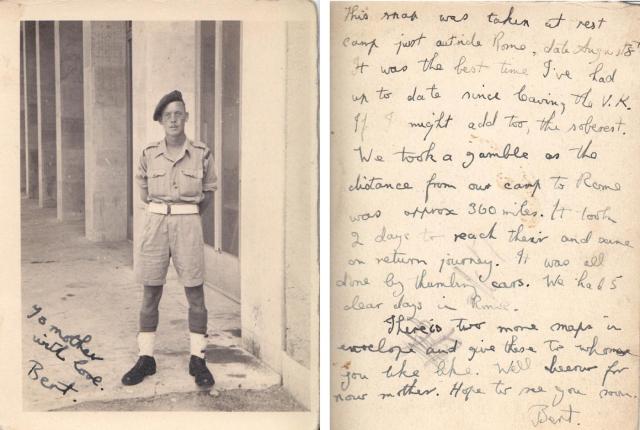 To mother
with love.
Bert.
This snap was taken at rest
camp just outside Rome, date August 8th
It was the best time I've had
up to date since leaving the U.K.
I might add too, the soberest.
We took a gamble as the
distance from our camp to Rome
was approx 360 miles. It took
2 days to reach their and same
on return journey. It was all
done by thumbing cars. We had 5
clear days in Rome.
There is two more snaps in
envelope and give these to whomever
you like like. Well cheerio for
now mother. Hope to see you soon.
Bert.